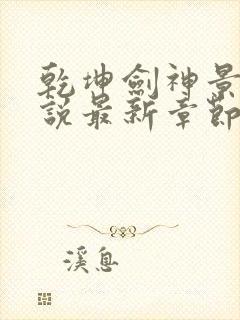 乾坤劍神景
說最新章節
溪息